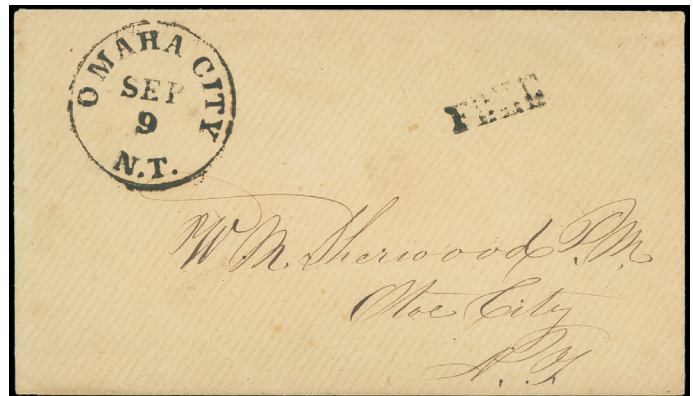 OMAHA CITY
SEP
9
N.T.
FREE
W. M. Sherwood P.M.
Otoe City
N.T.